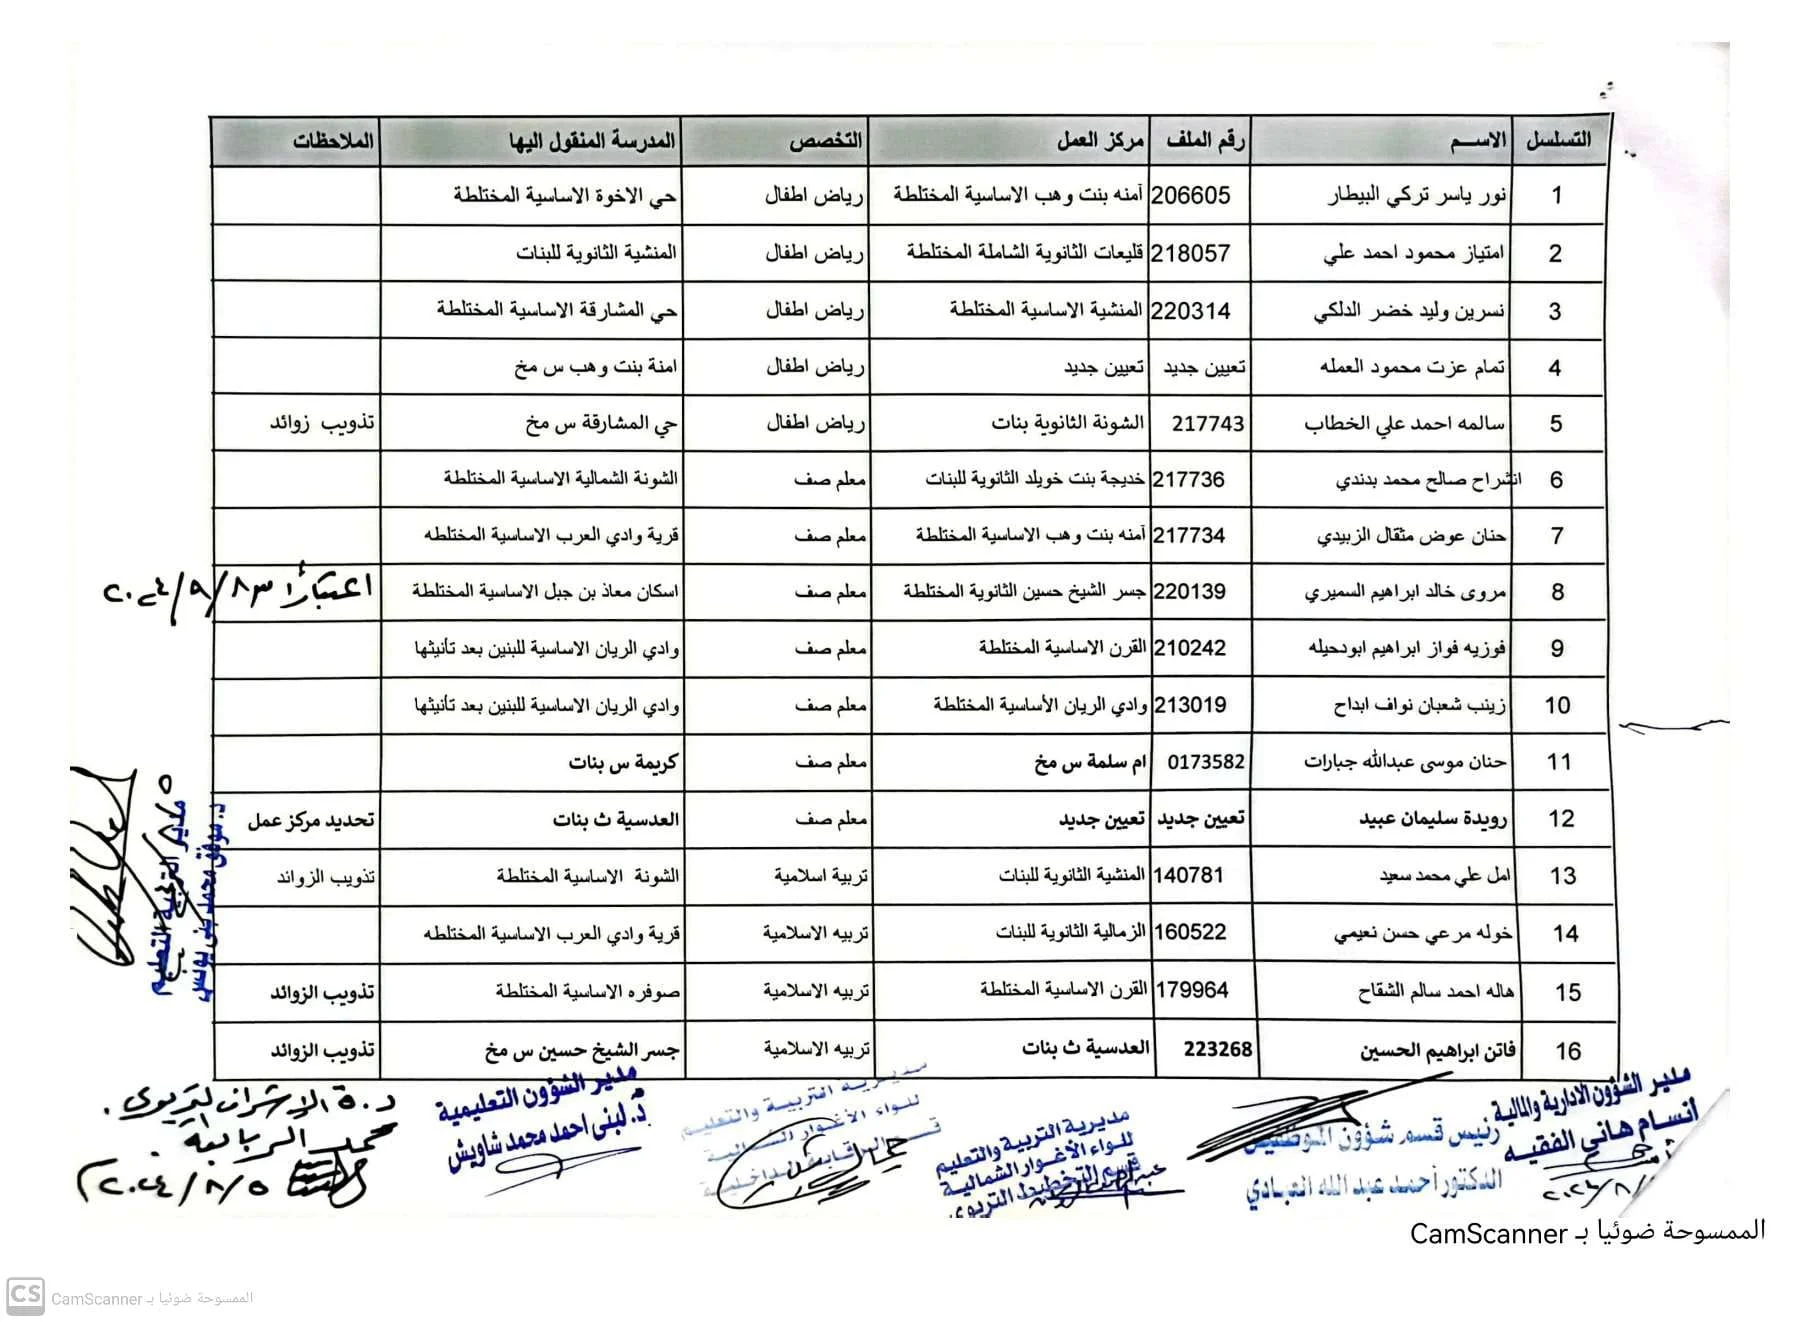 التسلسل الاســم رقم الملف مركز العمل التخصص المدرسة المنقول اليها الملاحظات
1 نور ياسر تركي البيطار 206605 آمنه بنت وهب الاساسية المختلطة رياض اطفال حي الاخوة الاساسية المختلطة
2 امتياز محمود احمد علي 218057 قليعات الثانوية الشاملة المختلطة رياض اطفال المنشية الثانوية للبنات
3 نسرين وليد خضر الدلكي 220314 المنشية الاساسية المختلطة رياض اطفال حي المشارقة الاساسية المختلطة
4 تمام عزت محمود العمله تعيين جديد تعيين جديد رياض اطفال امنة بنت وهب س مخ
5 سالمه احمد علي الخطاب 217743 الشونة الثانوية بنات رياض اطفال حي المشارقة س مخ تذويب زوائد
6 انشراح صالح محمد بدندي 217736 خديجة بنت خويلد الثانوية للبنات معلم صف الشونة الشمالية الاساسية المختلطة
7 حنان عوض مثقال الزبيدي 217734 آمنه بنت وهب الاساسية المختلطة معلم صف قرية وادي العرب الاساسية المختلطه
8 مروى خالد ابراهيم السميري 220139 جسر الشيخ حسين الثانوية المختلطة معلم صف اسكان معاذ بن جبل الاساسية المختلطة اعتباراً
9 فوزيه فواز ابراهيم ابودحيله 210242 القرن الاساسية المختلطة معلم صف وادي الريان الاساسية للبنين بعد تأنيثها
10 زينب شعبان نواف ابداح 213019 وادي الريان الأساسية المختلطة معلم صف وادي الريان الاساسية للبنين بعد تأنيثها
11 حنان موسى عبدالله جبارات 0173582 ام سلمة س مخ معلم صف كريمة س بنات
12 رويدة سليمان عبيد تعيين جديد تعيين جديد معلم صف العدسية ث بنات تحديد مركز عمل
13 امل علي محمد سعيد 140781 المنشية الثانوية للبنات تربية اسلامية الشونة الاساسية المختلطة تذويب الزوائد
14 خوله مرعي حسن نعيمي 160522 الزمالية الثانوية للبنات تربيه الاسلامية قرية وادي العرب الاساسية المختلطه
15 هاله احمد سالم الشقاح 179964 القرن الاساسية المختلطة تربيه الاسلامية صوفره الاساسية المختلطة تذويب الزوائد
16 فاتن ابراهيم الحسين 223268 العدسية ث بنات تربيه الاسلامية جسر الشيخ حسين س مخ تذويب الزوائد
مدير التربية والتعليم
د. موفق محمد بني يونس
مدير الشؤون الادارية والمالية
انسام هاني الفقيه
رئيس قسم شؤون الموظفين
الدكتور أحمد عبد الله العبادي
مديرية التربية والتعليم
للواء الأغوار الشمالية
قسم التخطيط التربوي
مديرية التربية والتعليم
للواء الأغوار الشمالية
قسم الرقابة الداخلية
مدير الشؤون التعليمية
د. لبنى احمد محمد شاويش
الإشراف التربوي
٢٠٢٤/٨/٥
الممسوحة ضوئيا بـ CamScanner
CS الممسوحة ضوئيا بـ CamScanner